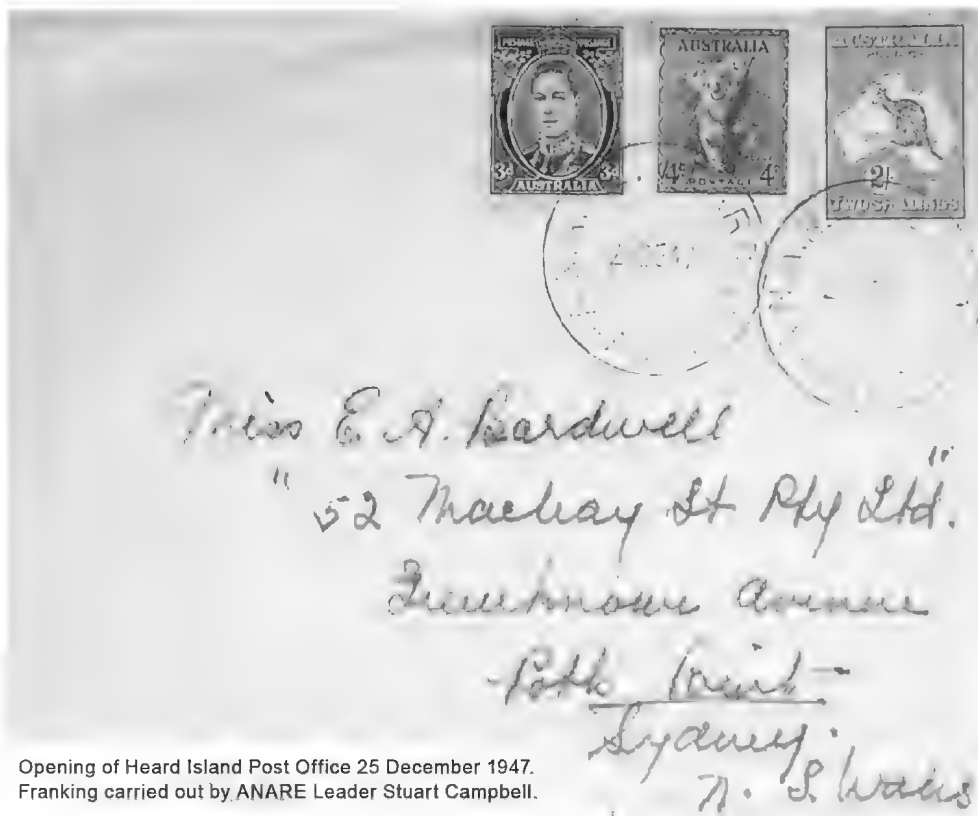 POSTAGE
3d 3d
AUSTRALIA
AUSTRALIA
4d 4d
POSTAGE
AUSTRALIA
2/-
TWO SHILLINGS
Miss E. A. Bardwell
"52 Macleay St Pty Ltd."
Avenue
Potts Point
Sydney.
N. S. Wales
Opening of Heard Island Post Office 25 December 1947.
Franking carried out by ANARE Leader Stuart Campbell.